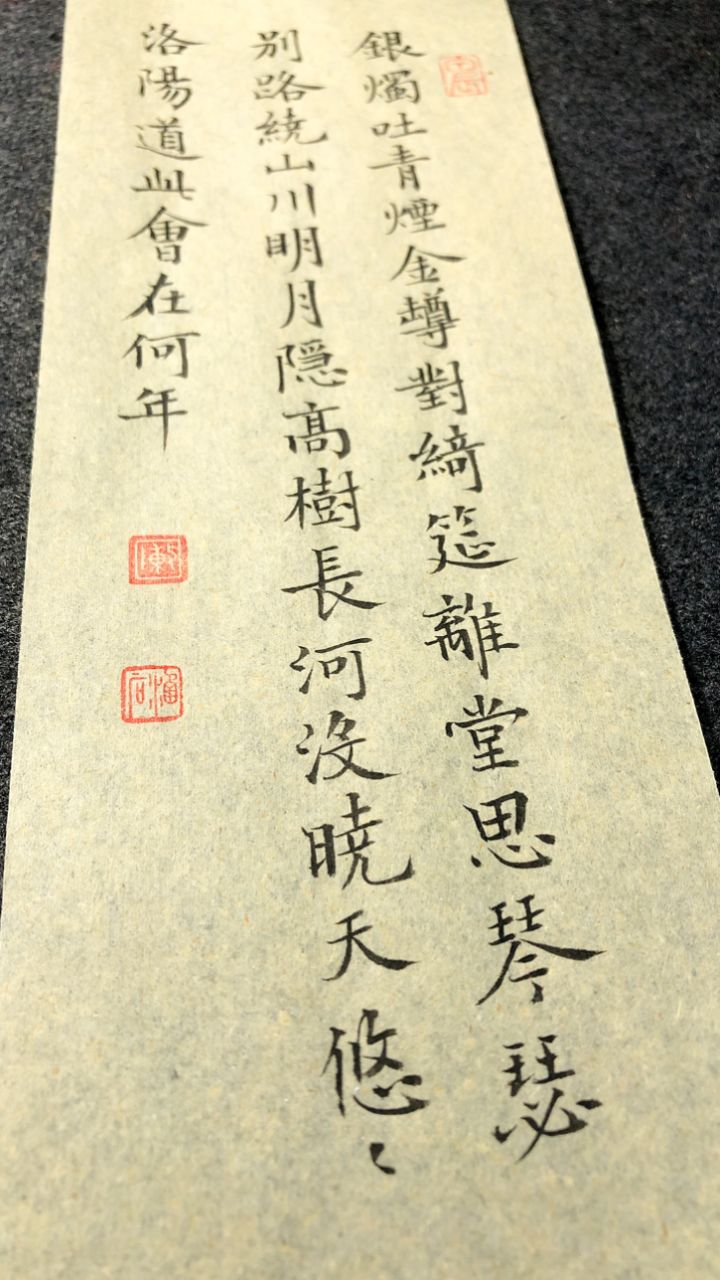 銀燭吐青煙金罇對綺筵離堂思琴瑟
別路繞山川明月隱高樹長河没曉天悠〻
洛陽道此會在何年